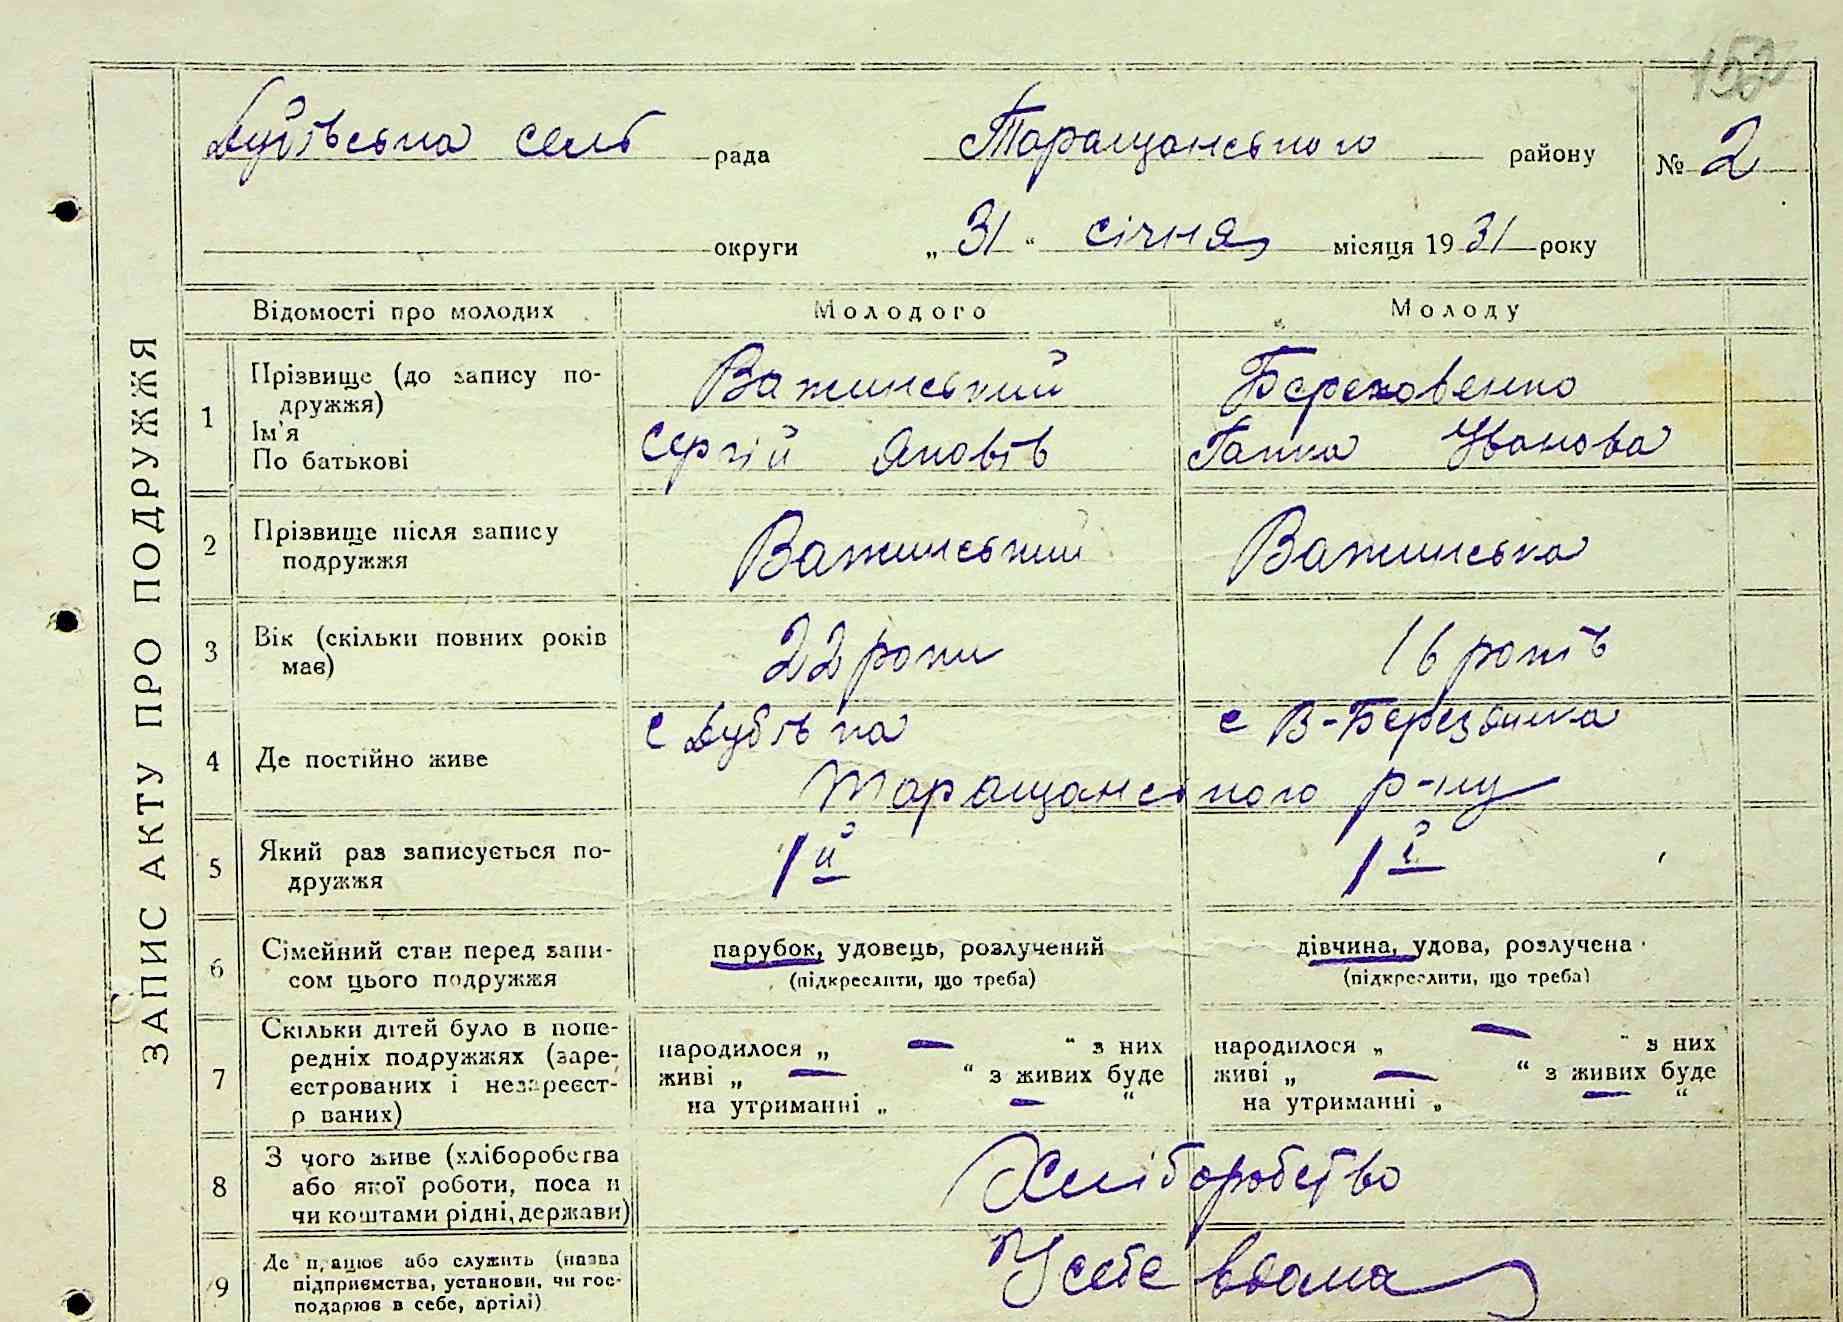 152
Дубівська сель рада Таращанського району № 2
округи „ 31 “ січня місяця 19 31 року
ЗАПИС АКТУ ПРО ПОДРУЖЖЯ
Відомості про молодих Молодого Молоду
1 Прізвище (до запису по-
дружжя)
Ім'я
По батькові
Важинський
Сергій Яковів
Береховенко
Ганка Іванова
2 Прізвище після запису
подружжя
Важинський Важинська
3 Вік (скільки повних років
має)
22 роки 16 років
4 Де постійно живе
с Дубівка с В-Березянка
Таращанського р-ну
5 Який раз записується по-
дружжя
1й 1ї
6 Сімейний стан перед запи-
сом цього подружжя
парубок, удовець, розлучений
(підкреслити, що треба)
дівчина, удова, розлучена
(підкреслити, що треба)
7 Скільки дітей було в попе-
редніх подружжях (заре-
єстрованих і незареєст-
р ваних)
народилося „ — “ з них
живі „ — “ з живих буде
на утриманні „ — “
народилося „ — “ з них
живі „ — “ з живих буде
на утриманні „ — “
8 З чого живе (хліборобства
або якої роботи, поса и
чи коштами рідні, держави)
Хліборобство
9 Де працює або служить (назва
підприємства, установи, чи гос-
подарює в себе, артілі)
У себе вдома